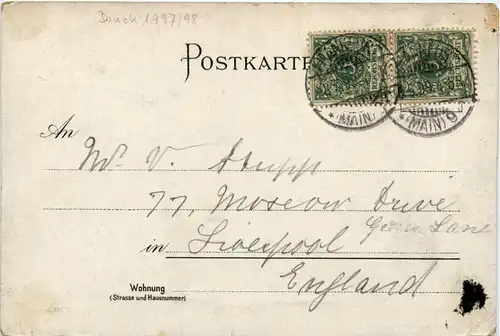 Druck 1897/98
POSTKARTE
(MAIN) (MAIN) 9
An
Mr. V. Stupp
77, Moscow Drive
Green Lane
in Liverpool
England
Wohnung
(Strasse und Hausnummer)